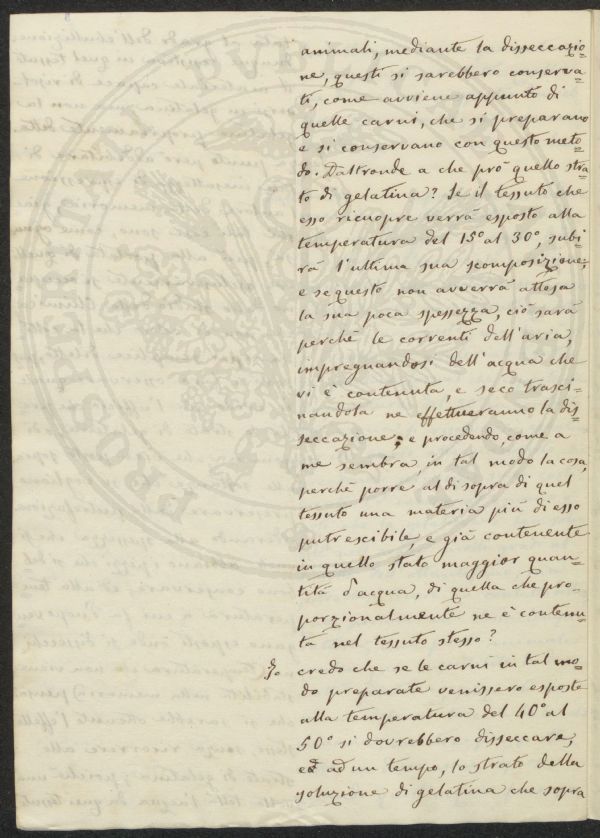 animali, mediante la disseccazio=
ne, questi si sarebbero conserva=
ti, come avviene appunto di
quelle carni, che si preparano
e si conservano con questo meto=
do. Daltronde a che prò quello stra=
to di gelatina? Se il tessuto che
esso ricuopre verrà esposto alla
temperatura del 15° al 30°, subi=
rà l'ultima sua scomposizione;
e se questo non avverrà attesa
la sua poca spessezza, ciò sarà
perchè le correnti dell'aria,
impregnandosi dell'acqua che
vi è contenuta, e seco trasci=
nandola ne effettueranno la dis=
seccazione; e procedendo, come a
me sembra, in tal modo la cosa,
perchè porre al di sopra di quel
tessuto una materia più di esso
putrescibile, e già contenente
in quello stato maggior quan=
tità d'acqua, di quella che pro=
porzionalmente ne è contenu=
ta nel tessuto stesso?
Io credo che se le carni in tal mo=
do preparate venissero esposte
alla temperatura del 40° al
50° si dovrebbero disseccare,
ed ad un tempo, lo strato della
soluzione di gelatina che sopra